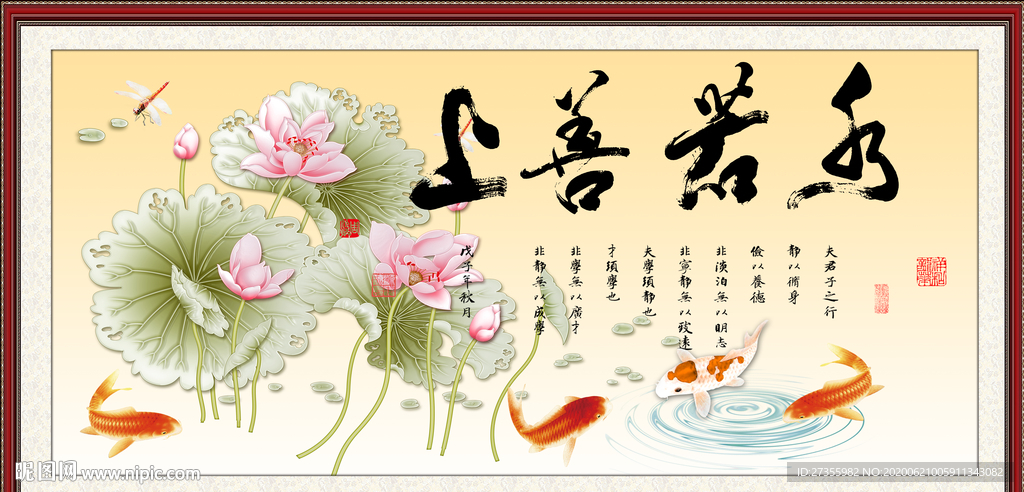 上善若水
夫君子之行
静以脩身
儉以養德
非淡泊無以明志
非寧静無以致遠
夫學須静也
才須學也
非學無以廣才
非静無以成學
戊子年秋月
昵图网 www.nipic.com
ID:27355982 NO:20200621005911343082